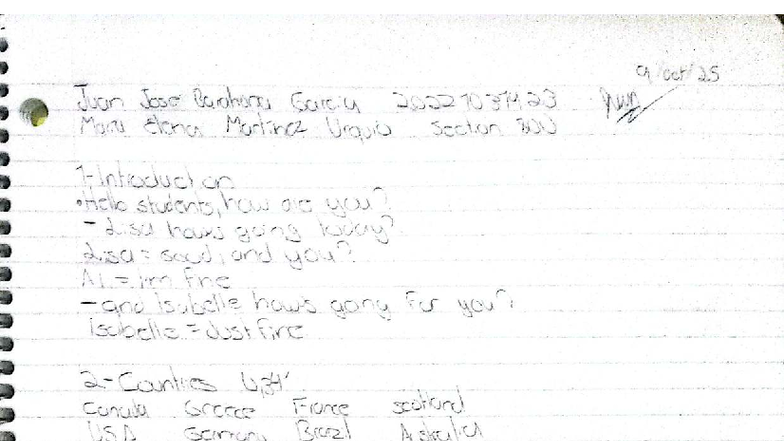 9/oct/25
Juan José Barahona Garcia 20227037423
Maria Elena Martinez Urquia Section 800
1-Introduction
•Hello students, how are you?
- Lisa how's going today?
Lisa = Good, and you?
AL = i'm fine
- and Isabelle how's going for you?
Isabelle = Just fine
2-Countries 6,34'
Canada Greece France scotland
USA Germany Brazil Australia